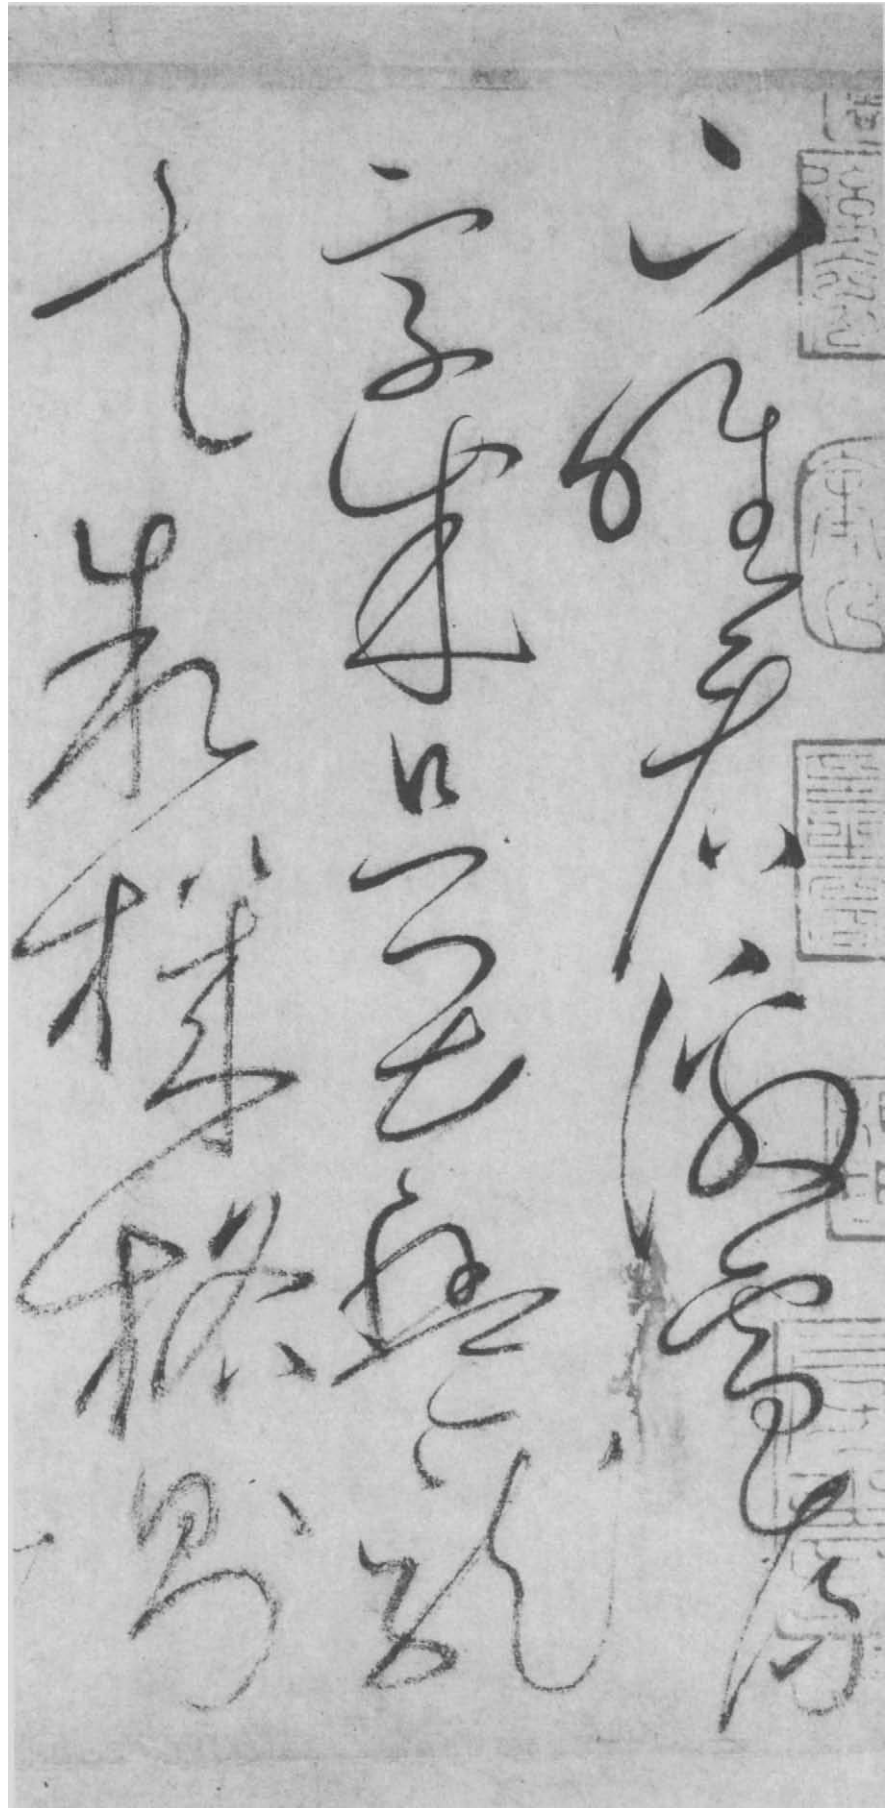 下唯看激電流
字成只畏盤龍
走敘機格則